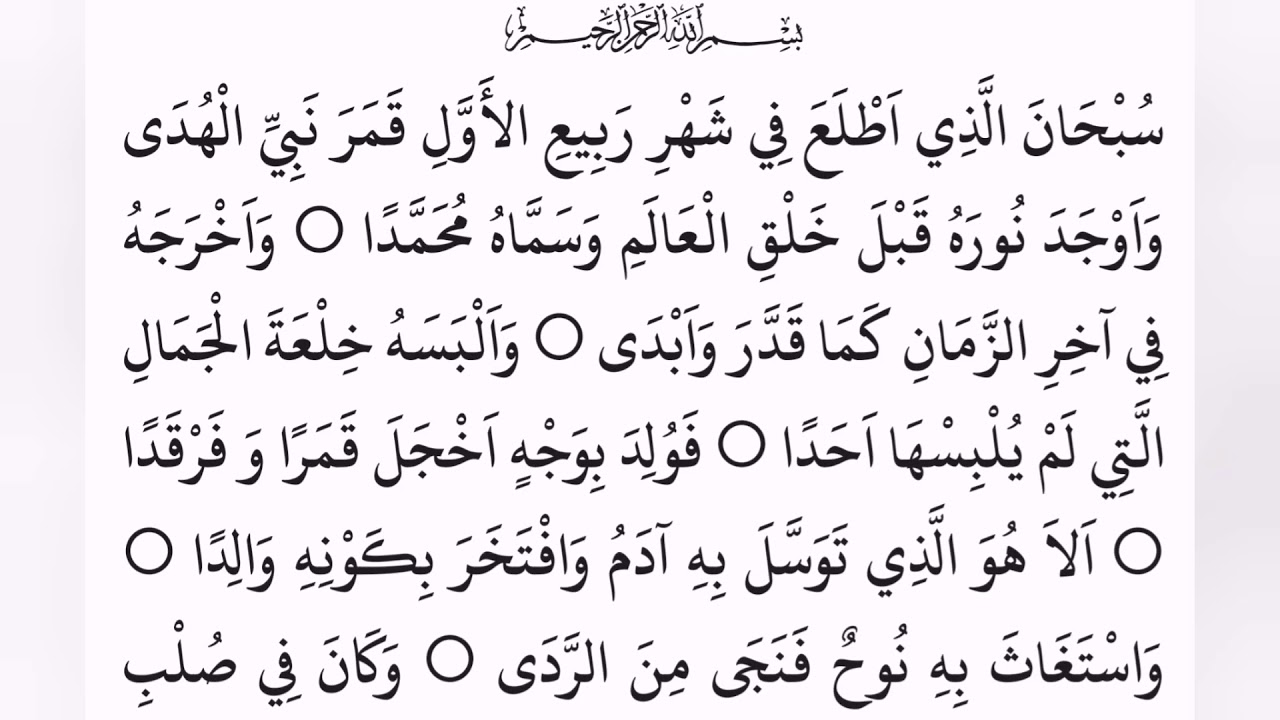 بِسْمِ اللهِ الرَّحْمٰنِ الرَّحِيْمِ
سُبْحَانَ الَّذِي اَطْلَعَ فِي شَهْرِ رَبِيعِ الأَوَّلِ قَمَرَ نَبِيِّ الْهُدَى
وَاَوْجَدَ نُورَهُ قَبْلَ خَلْقِ الْعَالَمِ وَسَمَّاهُ مُحَمَّدًا ○ وَاَخْرَجَهُ
فِي آخِرِ الزَّمَانِ كَمَا قَدَّرَ وَاَبْدَى ○ وَاَلْبَسَهُ خِلْعَةَ الْجَمَالِ
الَّتِي لَمْ يُلْبِسْهَا اَحَدًا ○ فَوُلِدَ بِوَجْهٍ اَخْجَلَ قَمَرًا وَ فَرْقَدًا
○ اَلاَ هُوَ الَّذِي تَوَسَّلَ بِهِ آدَمُ وَافْتَخَرَ بِكَوْنِهِ وَالِدًا ○
وَاسْتَغَاثَ بِهِ نُوحٌ فَنَجَى مِنَ الرَّدَى ○ وَكَانَ فِي صُلْبِ